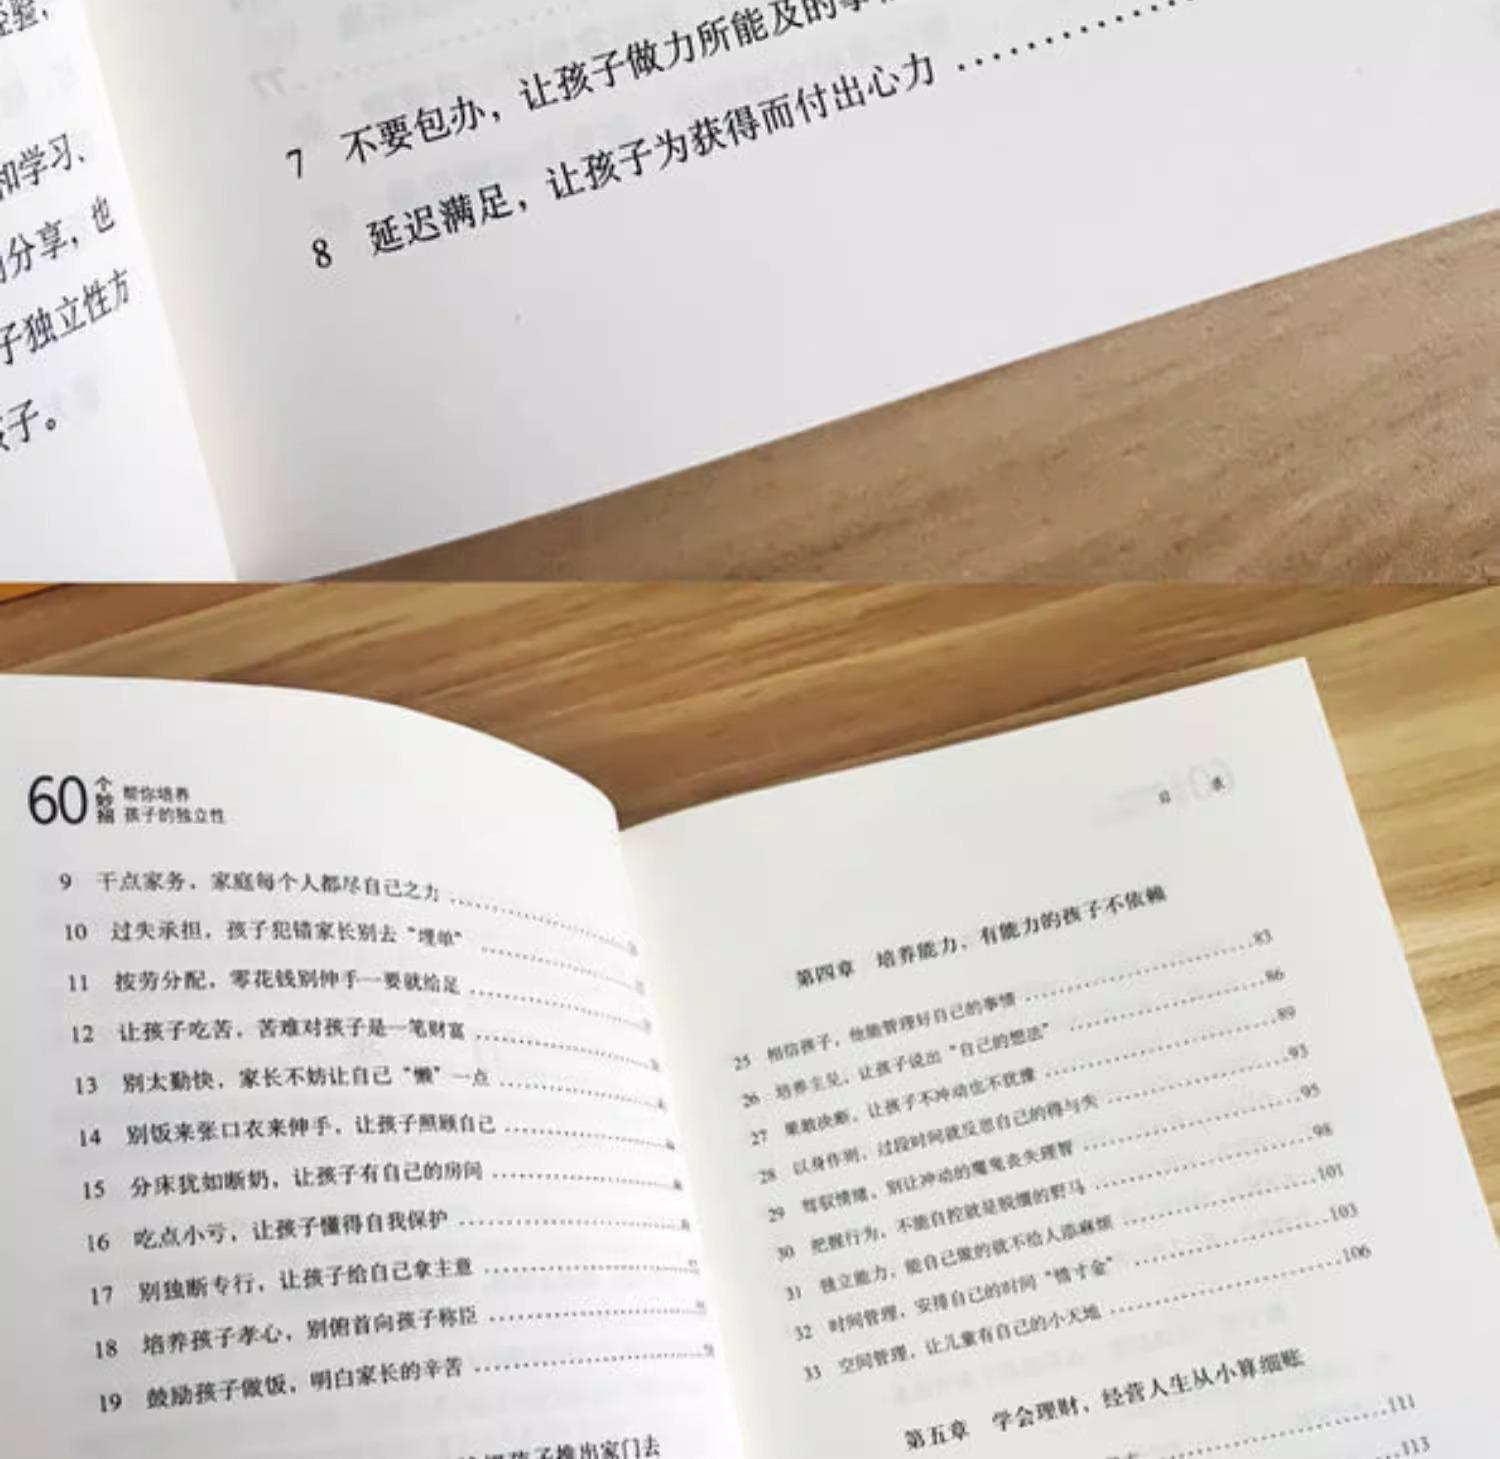 经验，
和学习、
分享，也
子独立性方
孩子。
77
7 不要包办，让孩子做力所能及的事
8 延迟满足，让孩子为获得而付出心力
60个妙招 帮你培养
孩子的独立性
9 干点家务，家庭每个人都尽自己之力
10 过失承担，孩子犯错家长别去“埋单”
11 按劳分配，零花钱别伸手一要就给足
12 让孩子吃苦，苦难对孩子是一笔财富
13 别太勤快，家长不妨让自己“懒”一点
14 别饭来张口衣来伸手，让孩子照顾自己
15 分床犹如断奶，让孩子有自己的房间
16 吃点小亏，让孩子懂得自我保护
17 别独断专行，让孩子给自己拿主意
18 培养孩子孝心，别俯首向孩子称臣
19 鼓励孩子做饭，明白家长的辛苦
孩子推出家门去
目 录
第四章 培养能力，有能力的孩子不依赖
25 相信孩子，他能管理好自己的事情 83
26 培养主见，让孩子说出“自己的想法” 86
27 果敢决断，让孩子不冲动也不犹豫 89
28 以身作则，过段时间就反思自己的得与失 93
29 驾驭情绪，别让冲动的魔鬼丧失理智 95
30 把握行为，不能自控就是脱缰的野马 98
31 独立能力，能自己做的就不给人添麻烦 101
32 时间管理，安排自己的时间“惜寸金” 103
33 空间管理，让儿童有自己的小天地 106
第五章 学会理财，经营人生从小算细账
111
113